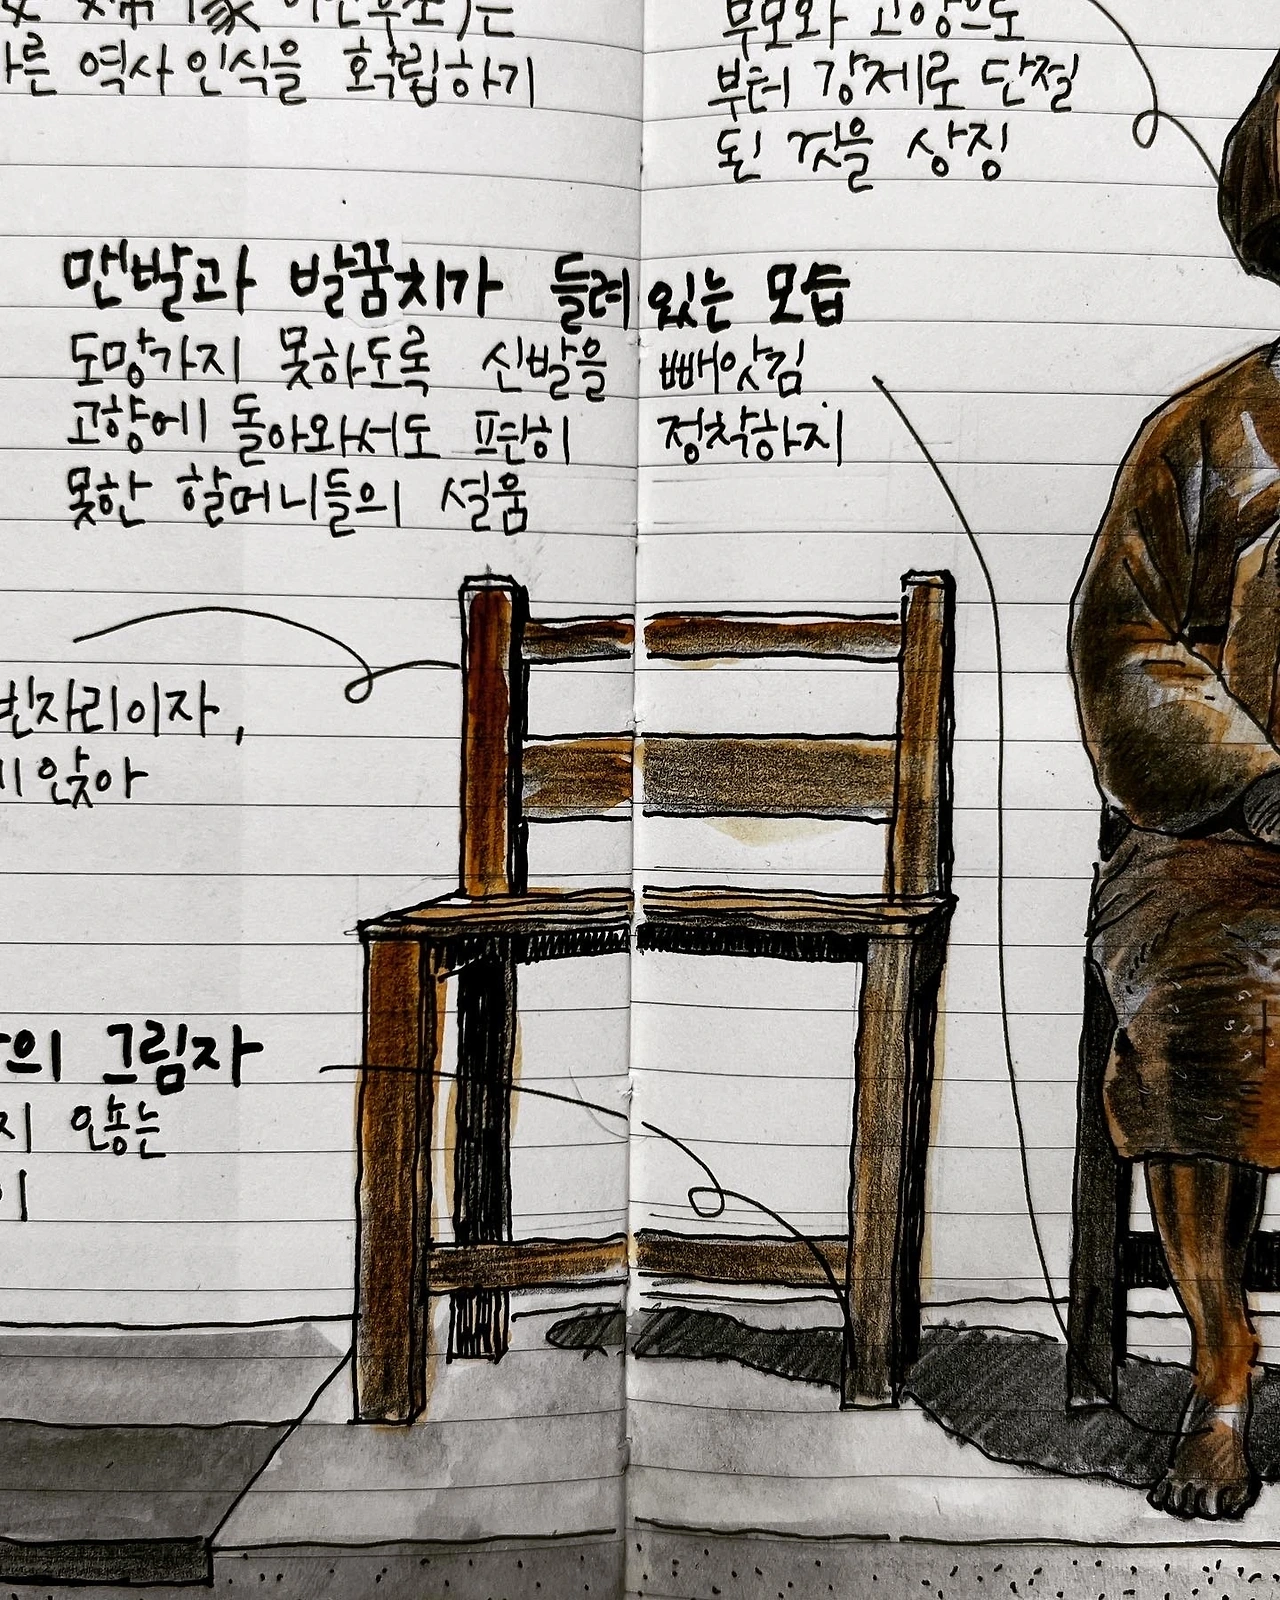 역사 인식을 확립하기
부모와 고향으로
부터 강제로 단절
된 것을 상징
맨발과 발꿈치가 들려 있는 모습
도망가지 못하도록 신발을 빼앗김
고향에 돌아와서도 편히 정착하지
못한 할머니들의 설움
빈자리이자,
앉아
그림자
않는